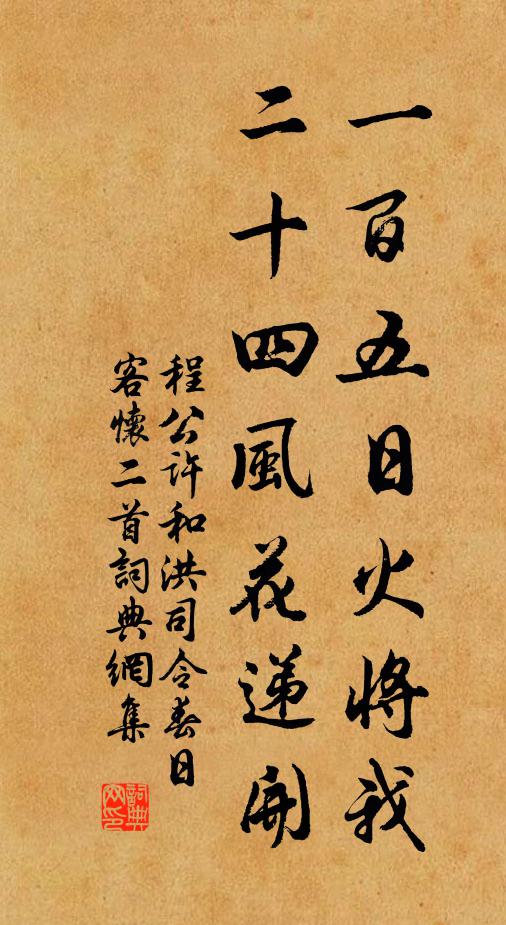 一百五日火將我
二十四風花遞開
程公許和洪司令春日
客懷二首詞典網集
詞典
網印